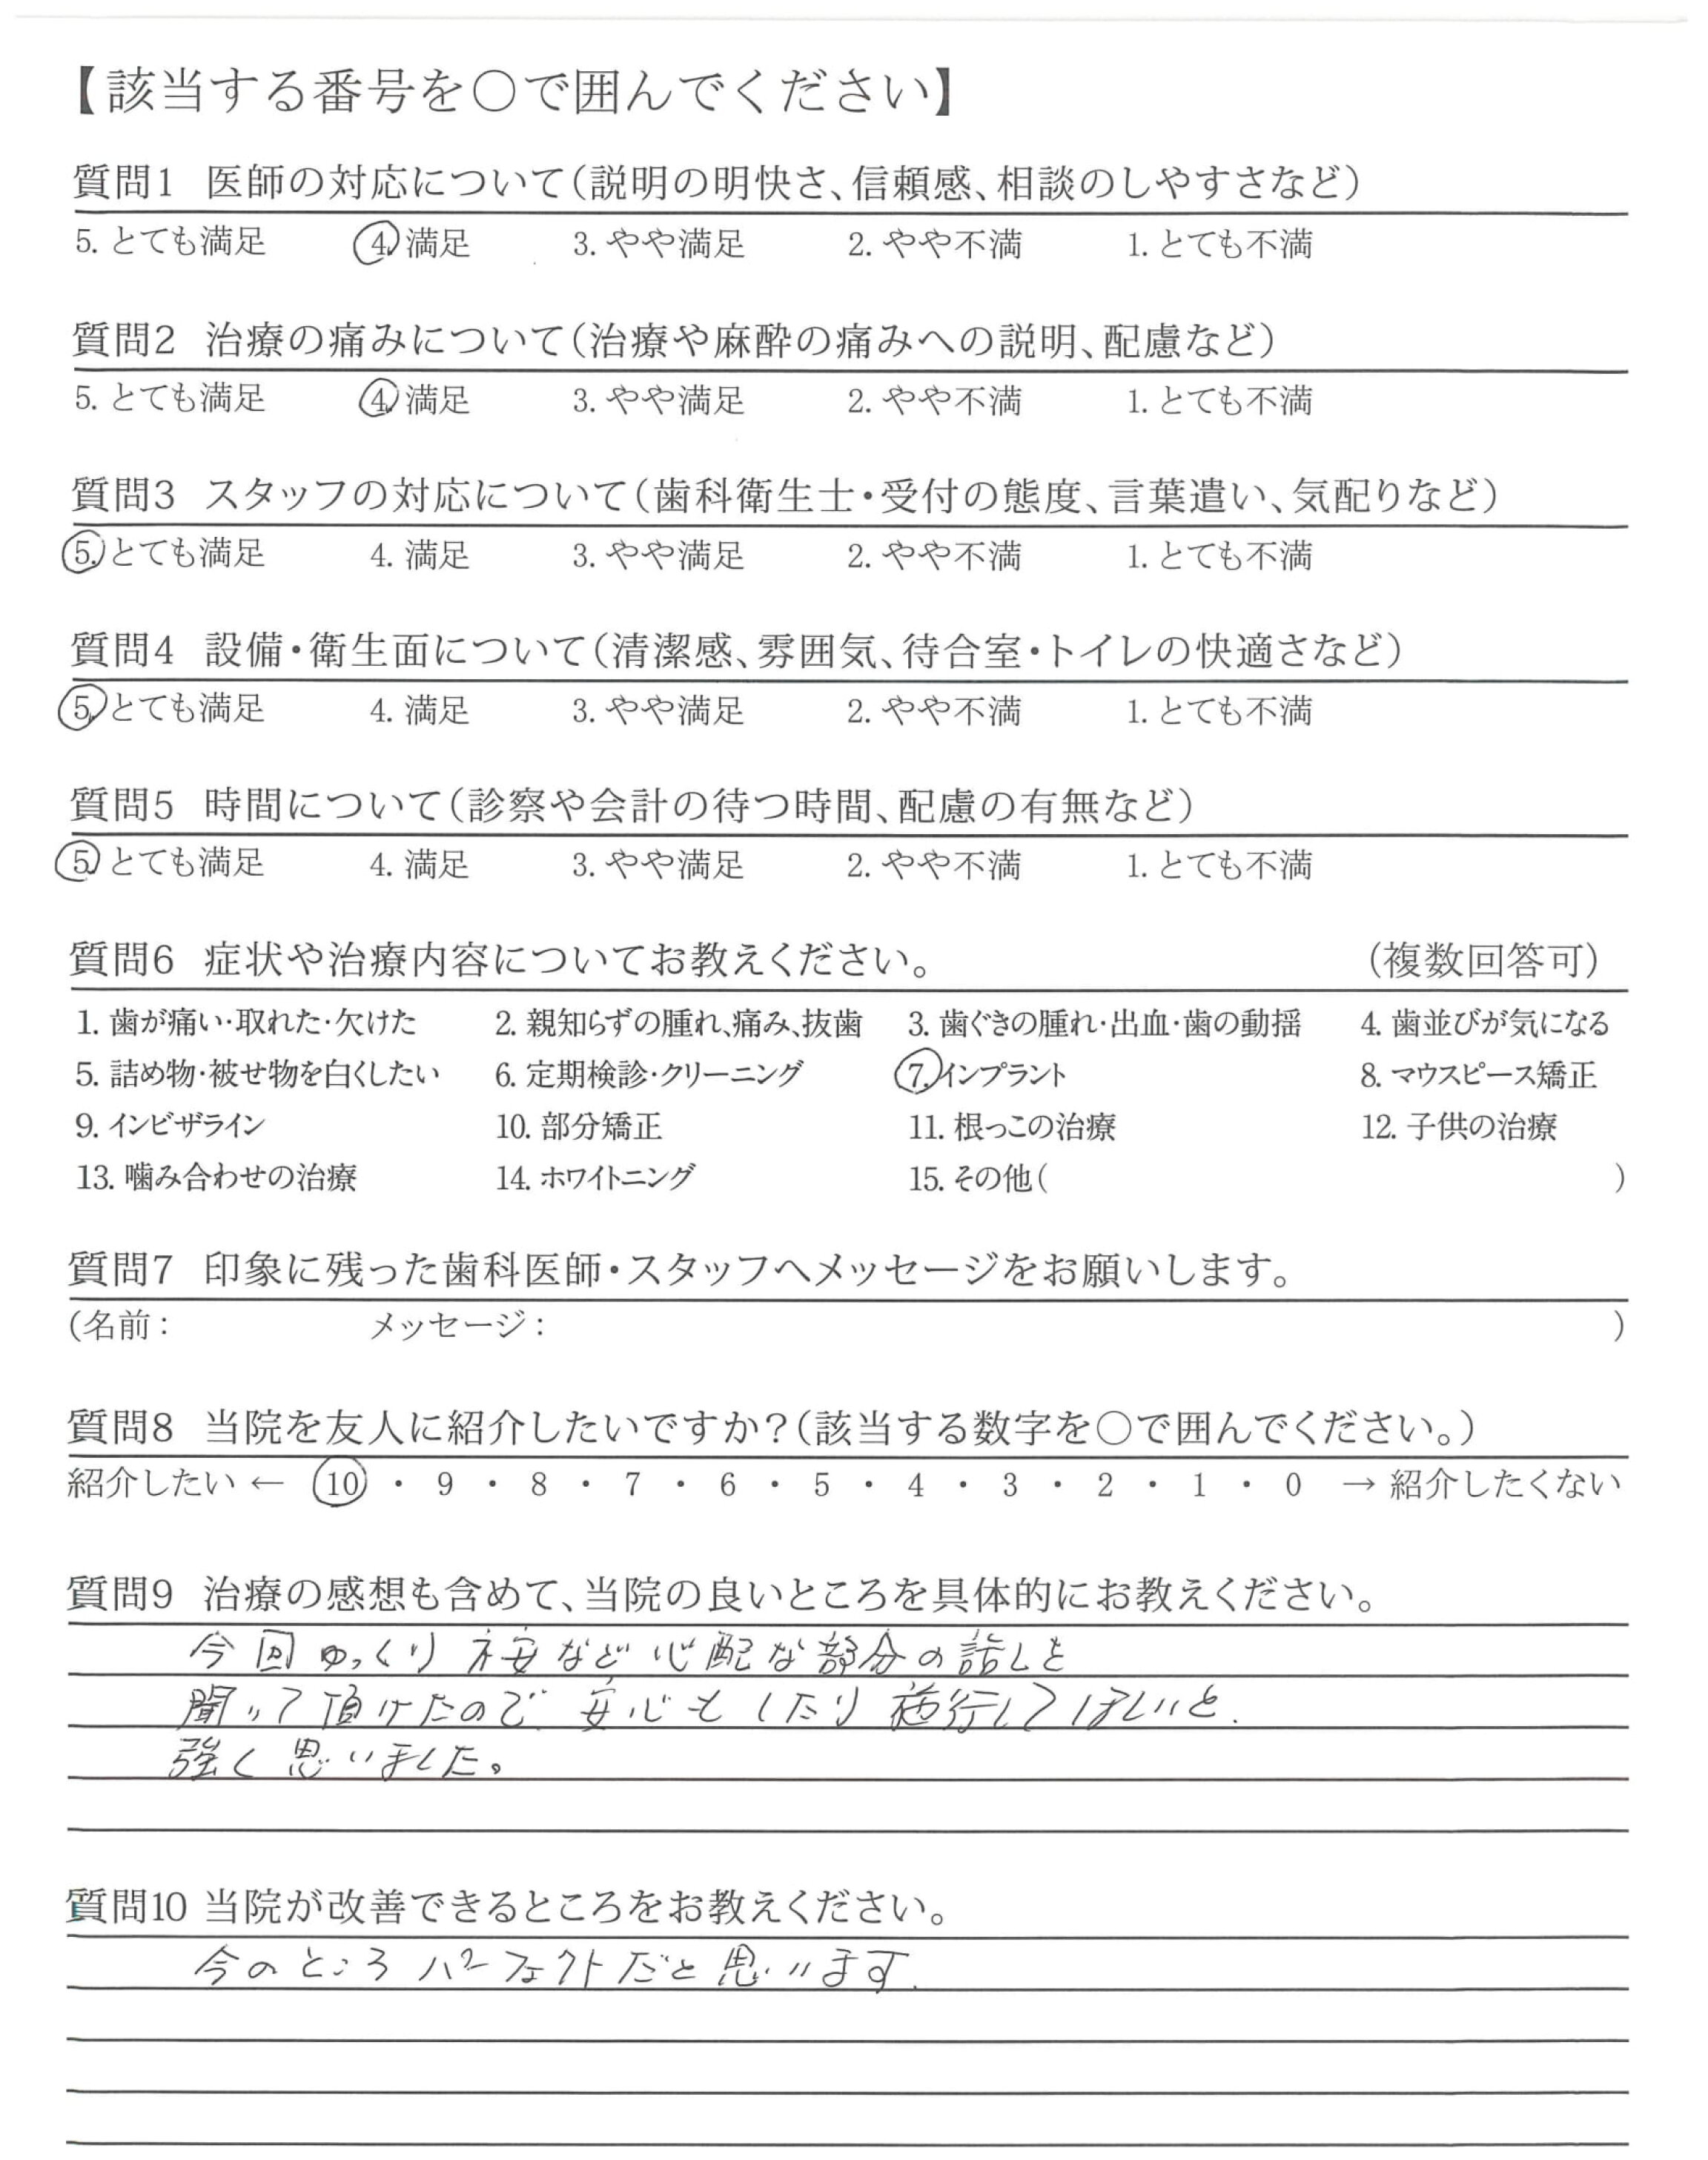 【該当する番号を○で囲んでください】
質問1 医師の対応について(説明の明快さ、信頼感、相談のしやすさなど)
5. とても満足 4. 満足 3. やや満足 2. やや不満 1. とても不満
質問2 治療の痛みについて(治療や麻酔の痛みへの説明、配慮など)
5. とても満足 4. 満足 3. やや満足 2. やや不満 1. とても不満
質問3 スタッフの対応について(歯科衛生士・受付の態度、言葉遣い、気配りなど)
5. とても満足 4. 満足 3. やや満足 2. やや不満 1. とても不満
質問4 設備・衛生面について(清潔感、雰囲気、待合室・トイレの快適さなど)
5. とても満足 4. 満足 3. やや満足 2. やや不満 1. とても不満
質問5 時間について(診察や会計の待つ時間、配慮の有無など)
5. とても満足 4. 満足 3. やや満足 2. やや不満 1. とても不満
質問6 症状や治療内容についてお教えください。 (複数回答可)
1. 歯が痛い・取れた・欠けた 2. 親知らずの腫れ、痛み、抜歯 3. 歯ぐきの腫れ・出血・歯の動揺 4. 歯並びが気になる
5. 詰め物・被せ物を白くしたい 6. 定期検診・クリーニング 7. インプラント 8. マウスピース矯正
9. インビザライン 10. 部分矯正 11. 根っこの治療 12. 子供の治療
13. 噛み合わせの治療 14. ホワイトニング 15. その他( )
質問7 印象に残った歯科医師・スタッフへメッセージをお願いします。
(名前: メッセージ: )
質問8 当院を友人に紹介したいですか?(該当する数字を○で囲んでください。)
紹介したい ← 10 ・ 9 ・ 8 ・ 7 ・ 6 ・ 5 ・ 4 ・ 3 ・ 2 ・ 1 ・ 0 → 紹介したくない
質問9 治療の感想も含めて、当院の良いところを具体的にお教えください。
今回ゆっくり不安など心配な部分の話しを
聞いて頂けたので 安心もしたり 施行してほしいと.
強く思いました。
質問10 当院が改善できるところをお教えください。
今のところ パーフェクトだと思います.